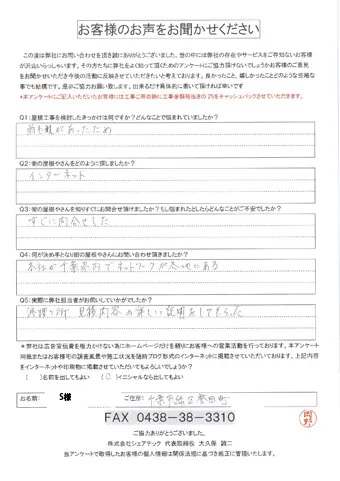 お客様のお声をお聞かせください
この度は弊社にお問い合わせを頂き誠にありがとうございました。世の中には弊社の存在やサービスをご存知ないお客様
が沢山いらっしゃいます。その方たちに弊社をよく知って頂くためのアンケートにご協力頂けないでしょうかお客様のご意見
をお聞かせいただき今後の活動に反映させていただきたいと考えております。良かったこと、嬉しかったことどのような些細な
事でも結構です。是非ご協力お願い致します。出来るだけ具体的に書いて頂ければ幸いです
*本アンケートにご記入いただいたお客様には工事ご発注時に工事金額税抜きの2%をキャッシュバックさせていただきます。
Q1:屋根工事を検討したきっかけは何ですか?どんなことで悩まれていましたか?
雨もれがあったため
Q2:街の屋根やさんをどのように探しましたか?
インターネット
Q3:街の屋根やさんを知りすぐにお問合せ頂けましたか?もし悩まれたとしたらどんなことがご不安でしたか?
すぐに問合せした
Q4:何が決め手となり街の屋根やさんにお問い合わせ頂きましたか?
本社が千葉県内でネットワークが各地にある
Q5:実際に弊社担当者がお伺いしていかがでしたか?
修理ヶ所 見積内容の詳しい説明をしてもらった
*弊社は広告宣伝費を極力かけない為にホームページだけを頼りにお客様への営業活動を行っております。本アンケート
用紙またはお客様宅の調査風景や施工状況を随時ブログ形式のインターネットに掲載させていただいております。上記内容
をインターネットや印刷物に掲載させていただいてもよろしいでしょうか?
( )名前を出してもよい (○)イニシャルなら出してもよい
お名前: S様 ご住所: 千葉市緑区誉田町
FAX 0438-38-3310
ご協力ありがとうございました。
株式会社シェアテック 代表取締役 大久保 誠二
当アンケートで取得したお客様の個人情報は関係法規に基づき厳正に管理いたします。